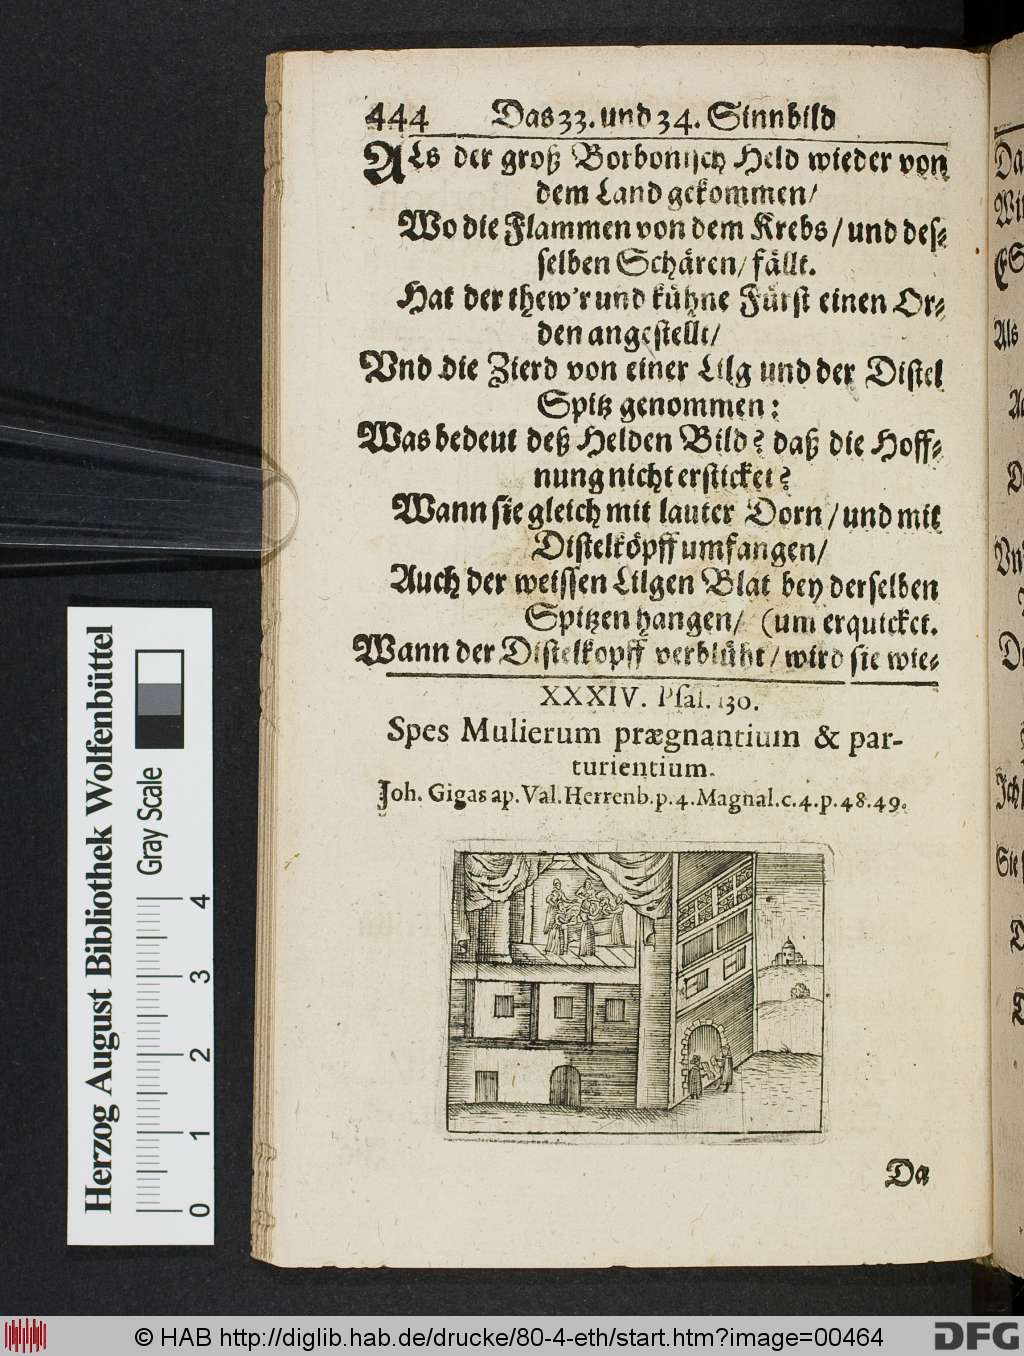 444 Das 33. und 34. Sinnbild
ALs der groß Borbonisch Held wieder von
dem Land gekommen/
Wo die Flammen von dem Krebs / und des-
selben Schären/ fällt.
Hat der thew'r und kühne Fürst einen Or-
den angestellt/
Vnd die Zierd von einer Lilg und der Distel
Spitz genommen:
Was bedeut deß Helden Bild? daß die Hoff-
nung nicht ersticket?
Wann sie gleich mit lauter Dorn / und mit
Distelköpff umfangen/
Auch der weissen Lilgen Blat bey derselben
Spitzen hangen/ (um erquicket.
Wann der Distelkopff verblüht / wird sie wie-
XXXIV. Psal. 130.
Spes Mulierum prægnantium & par-
turientium.
Joh. Gigas ap. Val. Herrenb. p. 4. Magnal. c. 4. p. 48. 49.
Da
Herzog August Bibliothek Wolfenbüttel
Gray Scale
0 1 2 3 4
Da
Wil
Als
Vn
Ich
Sie
© HAB http://diglib.hab.de/drucke/80-4-eth/start.htm?image=00464
DFG